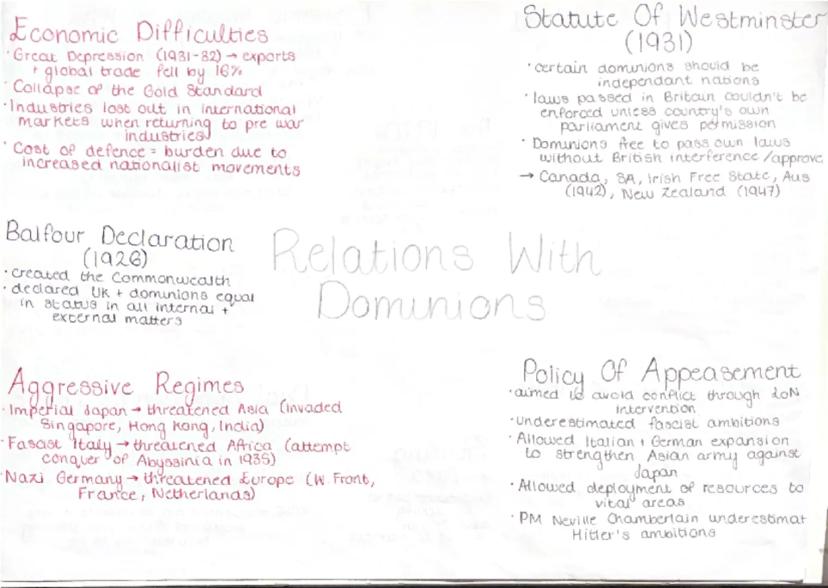 Economic Difficulties
· Great Depression (1931-32) → exports
+ global trade fell by 16%
· Collapse of the Gold Standard
· Industries lost out in international
markets when returning to pre war
industries
· Cost of defence = burden due to
increased nationalist movements
Statute Of Westminster
(1931)
· certain dominions should be
independant nations
· laws passed in Britain couldn't be
enforced unless country's own
parliament gives permission
· Dominions free to pass own laws
without British interference/approve
→ Canada, SA, Irish Free State, Aus
(1942), New Zealand (1947)
Balfour Declaration
(1926)
· created the Commonwealth
· declared UK + dominions equal
in status in all internal +
external matters
Relations With
Dominions
Aggressive Regimes
· Imperial Japan → threatened Asia (invaded
Singapore, Hong Kong, India)
· Fascist Italy → threatened Africa (attempt
conquer of Abyssinia in 1935)
· Nazi Germany → threatened Europe (W. Front,
France, Netherlands)
Policy Of Appeasement
· aimed to avoid conflict through LoN
intervention
· underestimated fascist ambitions
· Allowed Italian + German expansion
to strengthen Asian army against
Japan
· Allowed deployment of resources to
vital areas
· PM Neville Chamberlain underestimat
Hitler's ambitions